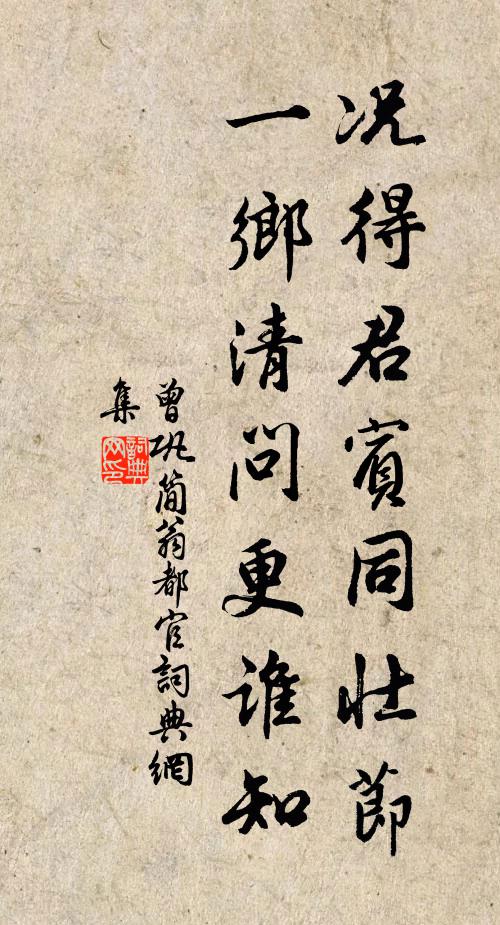 况得君賓同壯節
一鄉清問更誰知
曾巩简翁都官詞典網
集
詞典
网印